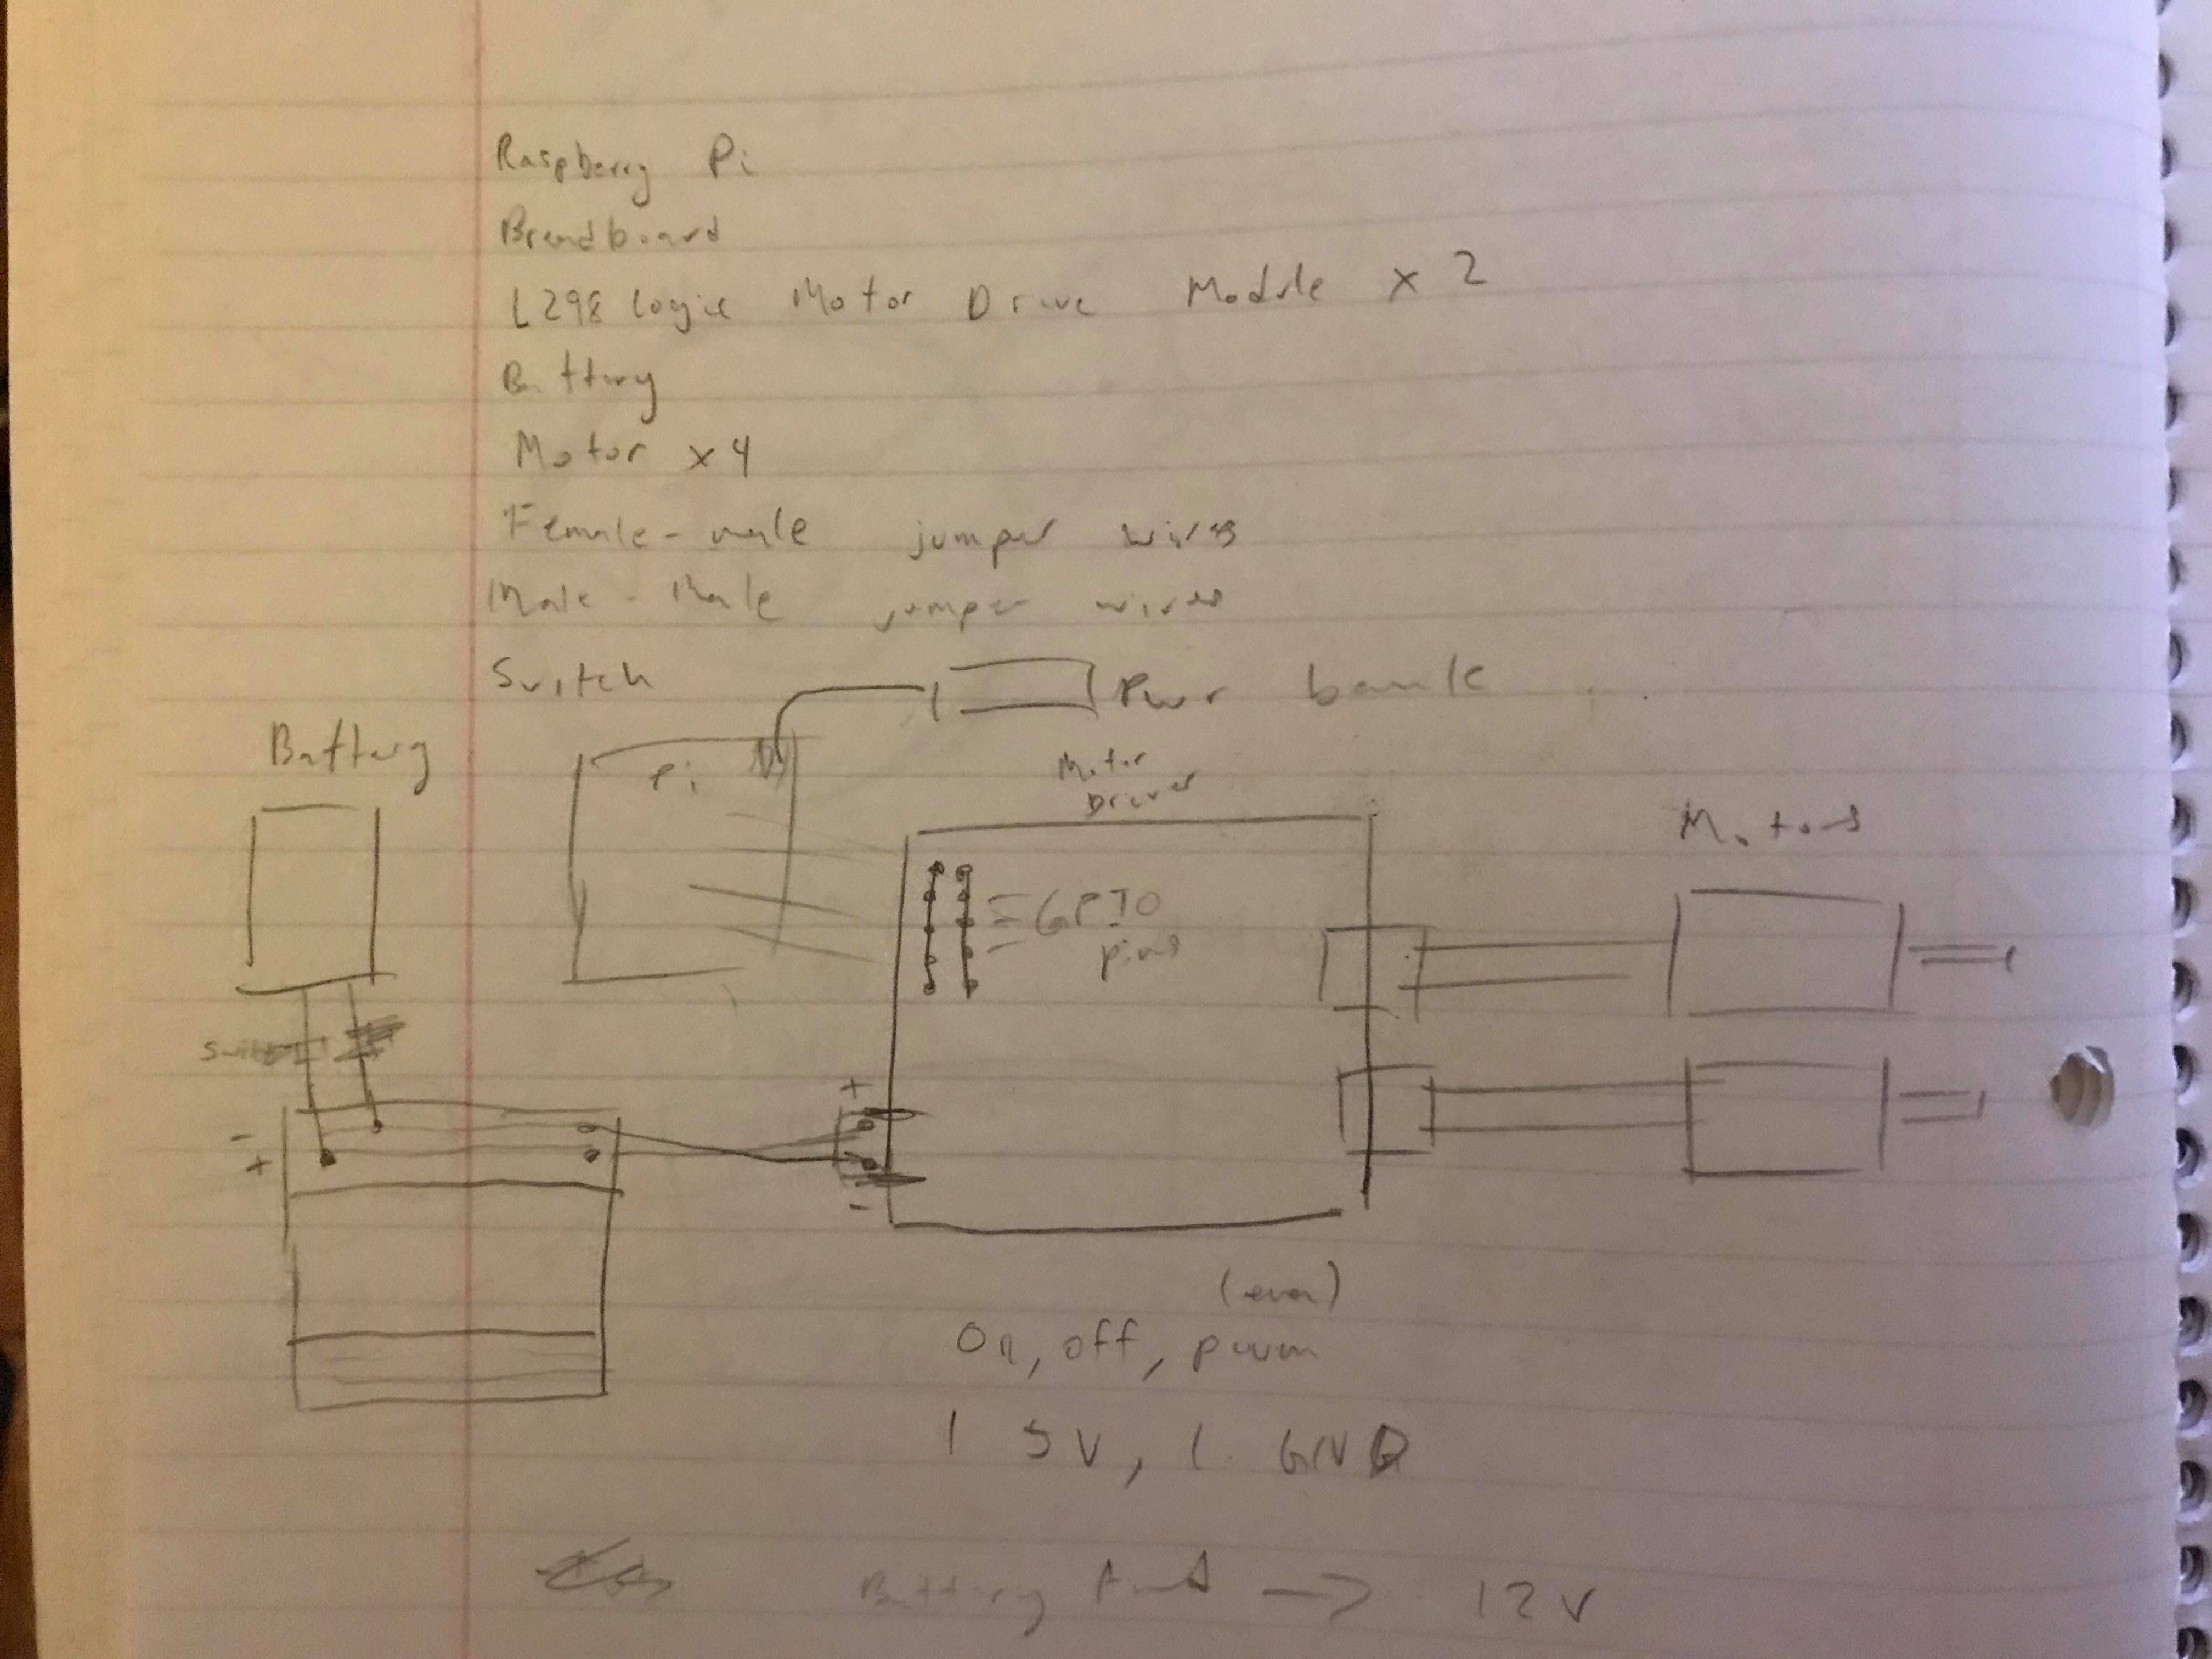 Raspberry Pi
Breadboard
L298 Logic Motor Drive Module x 2
Battery
Motor x4
Female-male jumper wires
Male-Male jumper wires
Switch
Pwr bank
Battery
Pi
Motor
Driver
Motors
= GPIO
pins
Switch
+
-
+
-
On, off, pwm
1 5V, 1 GND
Battery → 12V